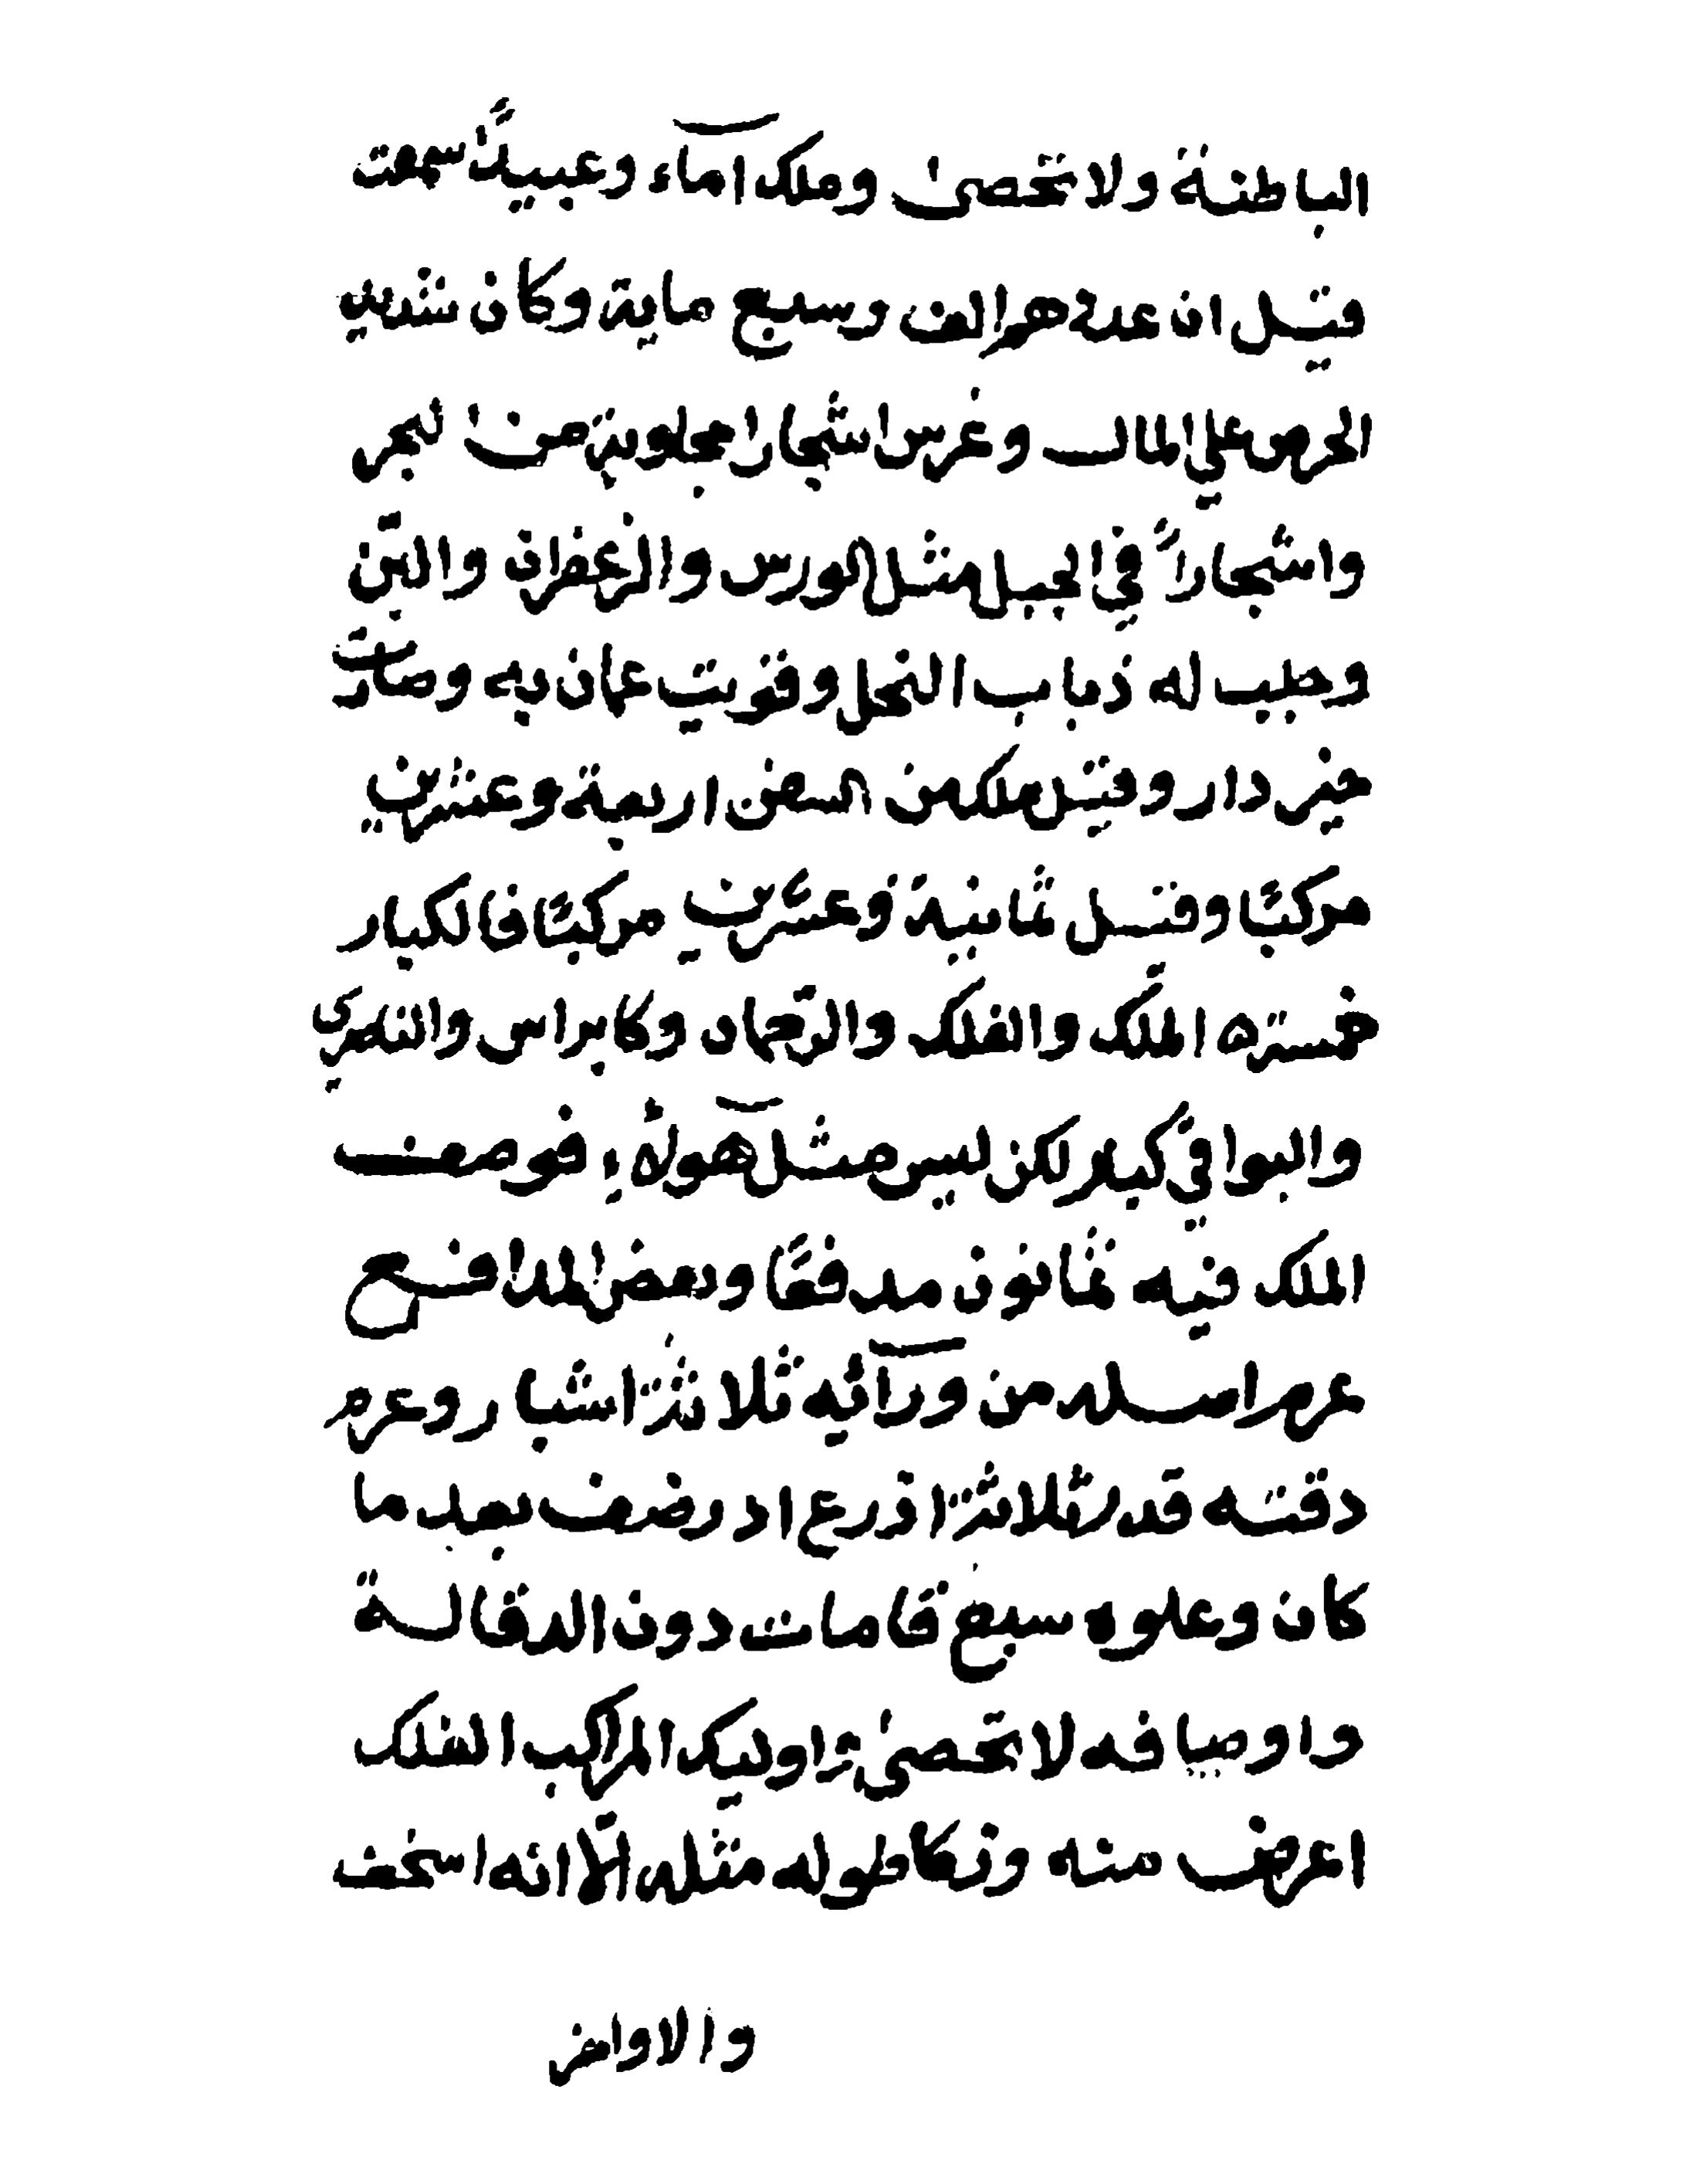 الباطنة ولا تحصىٰ وملك اماۤء وعبيدًا سمعت
قيل ان عدة هم الف وسبع ماية وكان شديد
الحرص على المال وغرس اشجارا مجلوبة من البحر
واشجاراً في الجبل مثل الورس والزعفران والبن
وجلب له ذباب النحل وقويت عمان به وصارت
خير دار وقيل ملك من السفن اربعة وعشرين
مركبًا وقيل ثمانية وعشرين مركبًا فالكبار
خمسة الملك والفلك والرحماني وكابراس والناصري
والبواقي كبار لكن ليس مثل هولاۤء فوصف
الملك فيه ثمانون مدفعًا وبعض المدافع
عرض اسله من ورآئه ثلاثة اشبار وعرض
دقته قدر ثلاثة اذرع او نصف بعد ما
كان وعلوه سبع قامات دون الدقالة
واوصافه لا تحصىٰ ثم اوليك المراكب الفلك
اعرض منه ونكا طوله مثله الّا انه اسخف
والاواخر